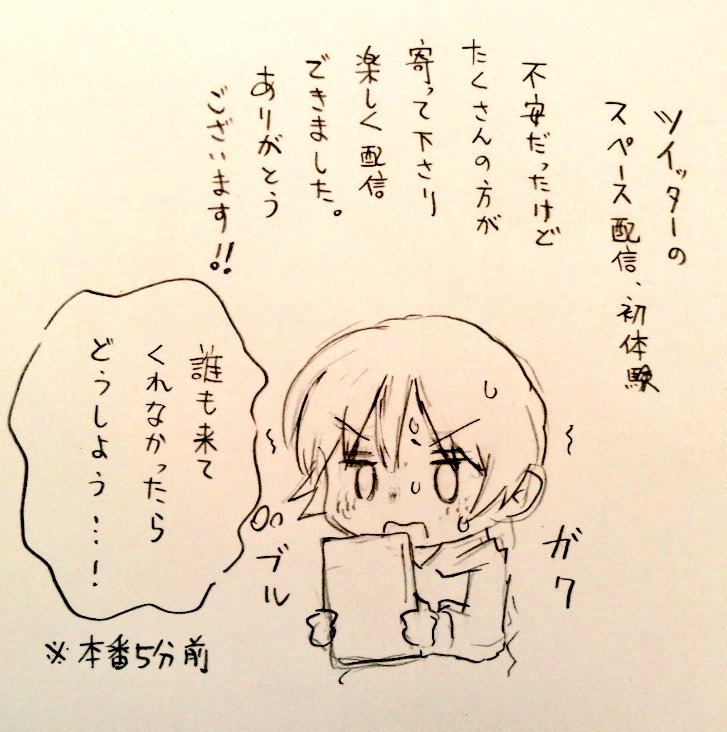 ツイッターの
スペース配信、初体験
不安だったけど
たくさんの方が
寄って下さり
楽しく配信
できました。
ありがとう
ございます!!
誰も来て
くれなかったら
どうしよう…!
ガク
ブル
※本番5分前